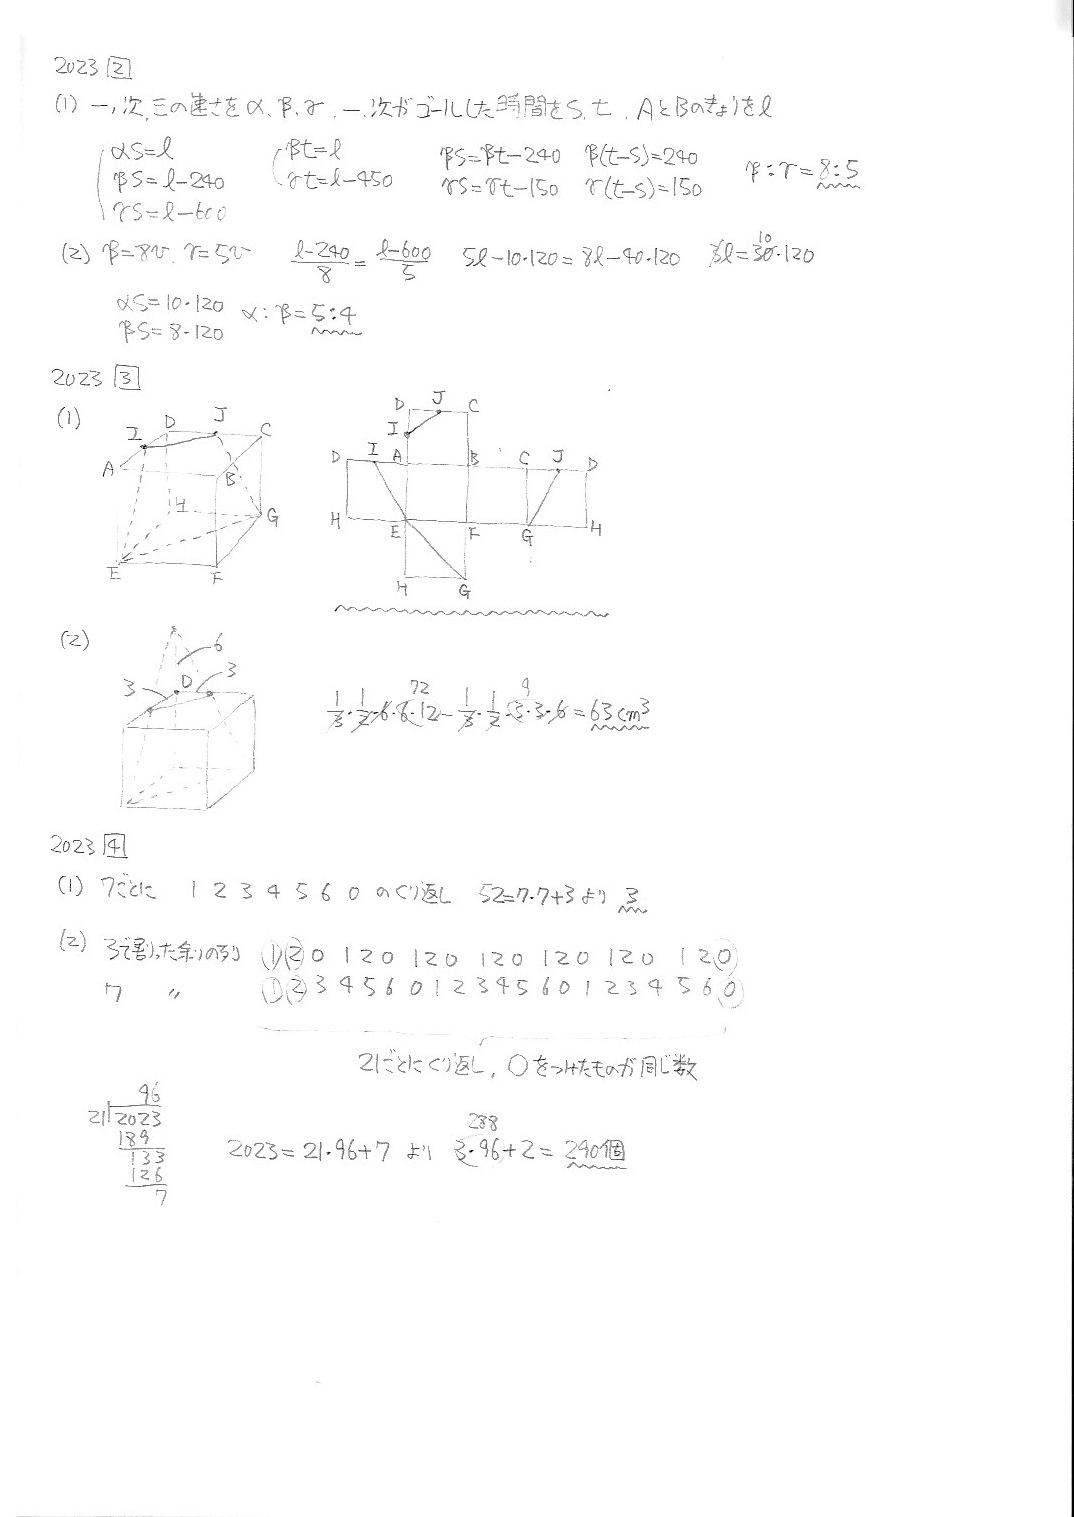 2023 2
(1) 一、次、三の速さをα、β、γ、一、次がゴールした時間をS、t、AとBのきょりをl
αS=l βt=l βS=βt-240 β(t-s)=240 β:γ=8:5
βS=l-240 γt=l-450 γS=γt-150 γ(t-s)=150
γS=l-600
(2) β=8v、γ=5v l-240/8=l-600/5 5l-10・120=8l-40・120 3l=30・120 10
αS=10・120 α:β=5:4
βS=8・120
2023 3
(1)
I D J C
A B
H G
E F
D J C
I
D I A B C J D
H E F G H
H G
(2)
6
3 D 3
1/3・1/2・6・6・12-1/3・1/2・3・3・6=63cm³
72 9
2023 4
(1) 7ごとに 1 2 3 4 5 6 0 のくり返し 52=7・7+3より 3
(2) 3で割った余りの列 1 2 0 1 2 0 1 2 0 1 2 0 1 2 0 1 2 0 1 2 0
7 〃 1 2 3 4 5 6 0 1 2 3 4 5 6 0 1 2 3 4 5 6 0
21ごとにくり返し、○をつけたものが同じ数
96
21 2023
189
133
126
7
288
2023=21・96+7 より 3・96+2=290個